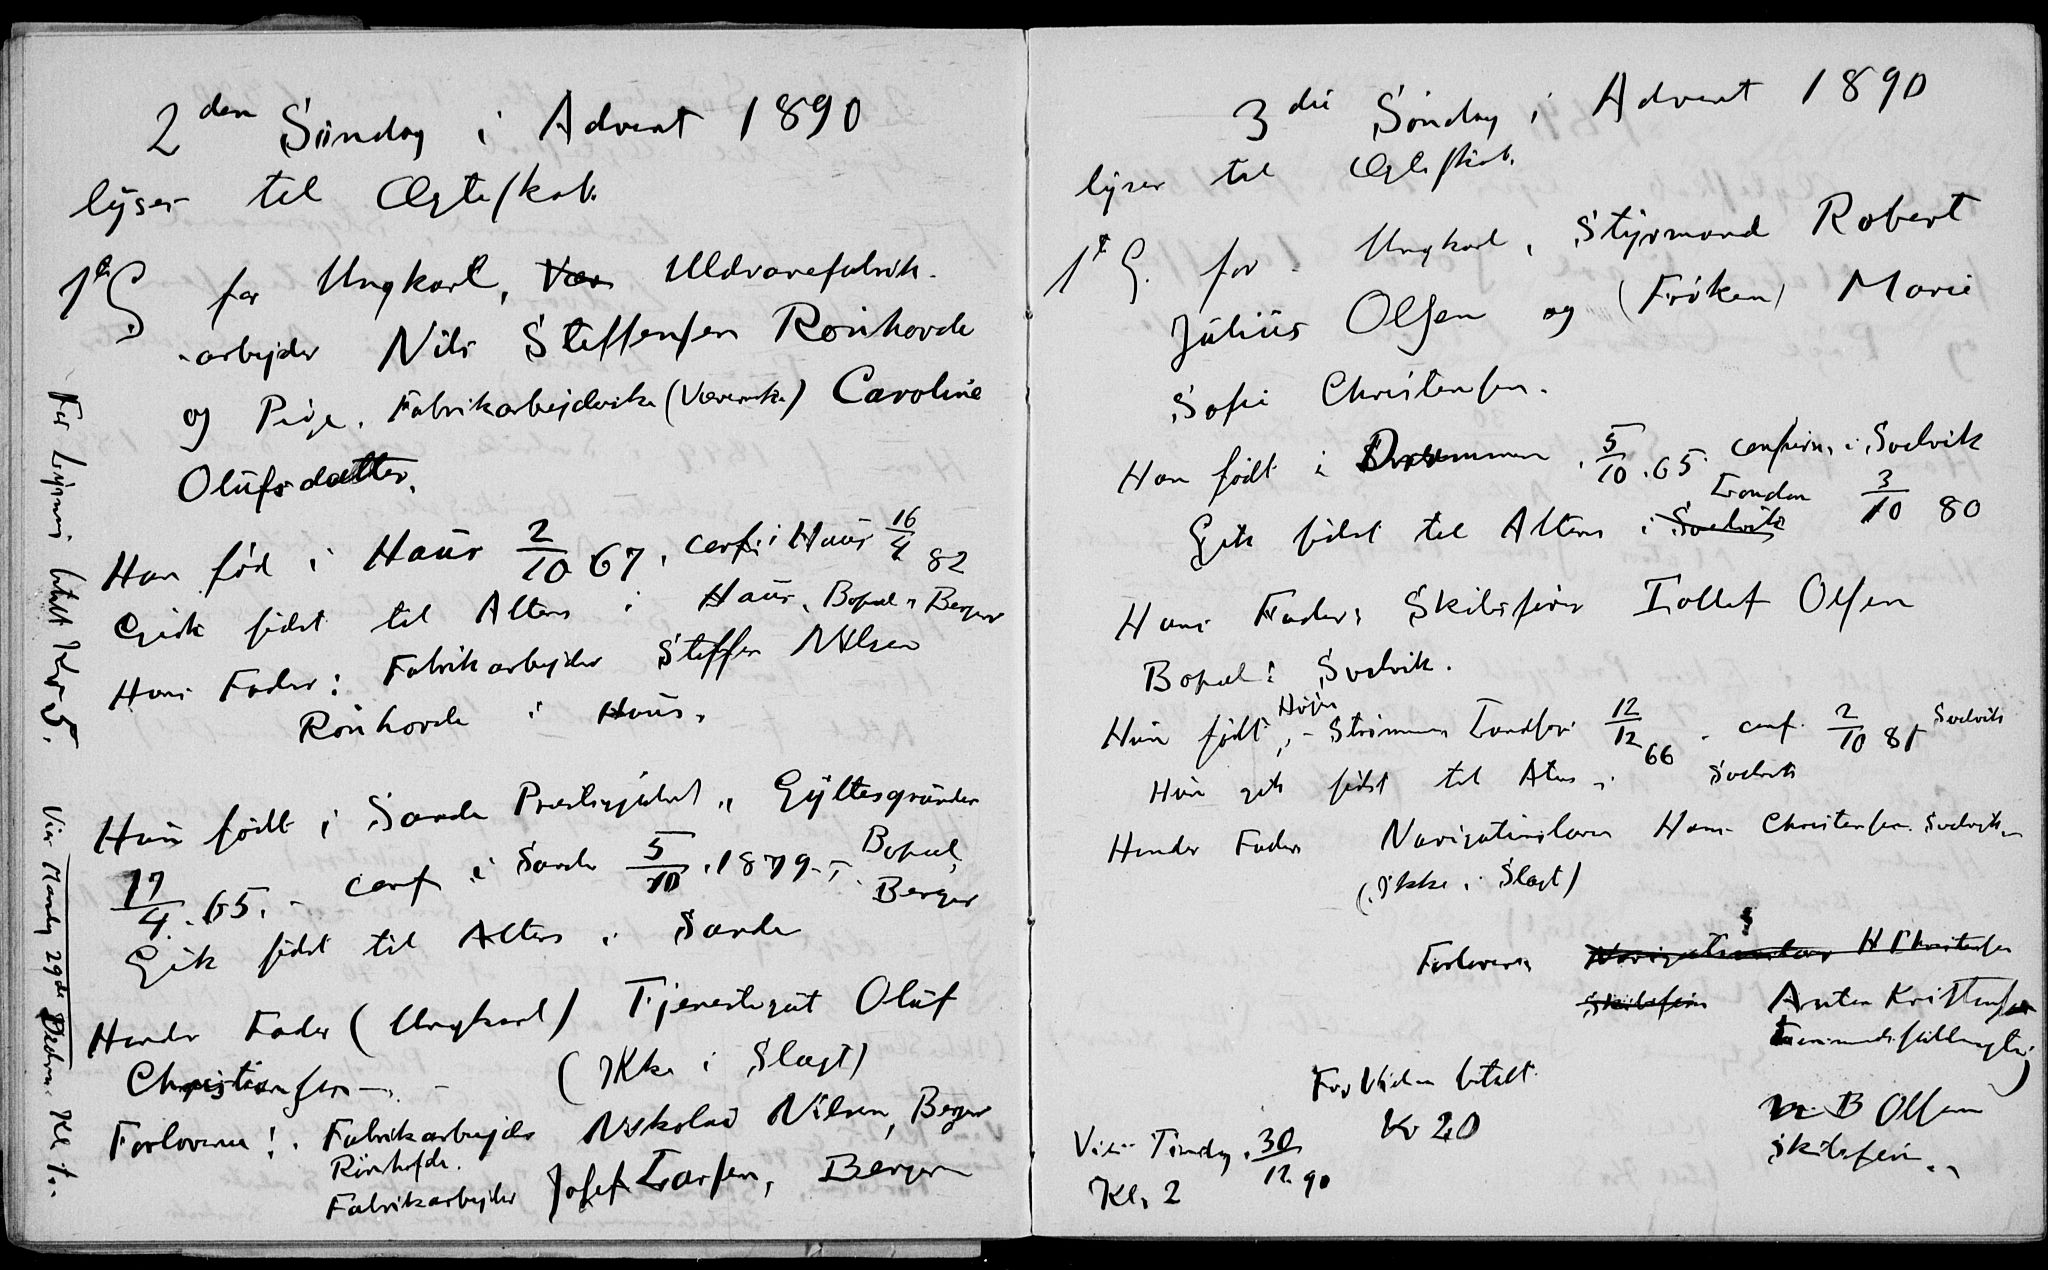 2den Søndag i Advent 1890
lyses til Ægteskab.
1ste G for Ungkarl, Uldvarefabrik-
arbejder Nils Steffensen Rønhovde
og Pige, Fabrikarbejderske (Væverske) Caroline
Olufsdatter.
Han fød i Haus 2/10 67, conf. i Haus 16/4 82
Gik sidst til Alters i Haus, Bopæl: Berger
Hans Fader: Fabrikarbejder Steffen Nilsen
Rønhovde i Haus.
Hun født i Sande Præstegjeld, Gyltesgrunden
17/4. 65. - conf i Sande 5/10. 1879 -, Bopæl,
Berger
Gik sidst til Alters i Sande
Hendes Fader (Ungkarl) Tjenestegut Oluf
Christiansen - (Ikke i Slægt)
Forloverne: Fabrikarbejder Nikolai Nilsen, Berger
Rønhofde.
Fabrikarbejder Josef Larsen, Bergern
For Lysning betalt Kr 5.
Vies Mandag 29de Decbr. Kl
3die Søndag i Advent 1890
lyses til Ægteskab.
1ste G. for Ungkarl, Styrmand Robert
Julius Olsen og (Frøken) Marie
Sofie Christensen.
Han født i Drammen 5/10. 65 confirm. i Svelvik
3/10 80
Gik sidst til Alters i Svelvik London
Hans Fader: Skibsfører Tollef Olsen
Bopæl: Svelvik.
Hun født, Strømmen 12/12 66 . conf. 2/10 81 Svelvik
Hun gik sidst til Alters i Svelvik
Hendes Fader Navigationslærer Hans Christensen. Svelvik
(Ikke i Slægt)
Forlovere Navigationslærer H Christensen
Skibsfører Anton Kristensen
B Olsen
skibsfører
For Vielsen betalt
Kr 20
Vies Tirsdag 30/12 90
Kl. 2